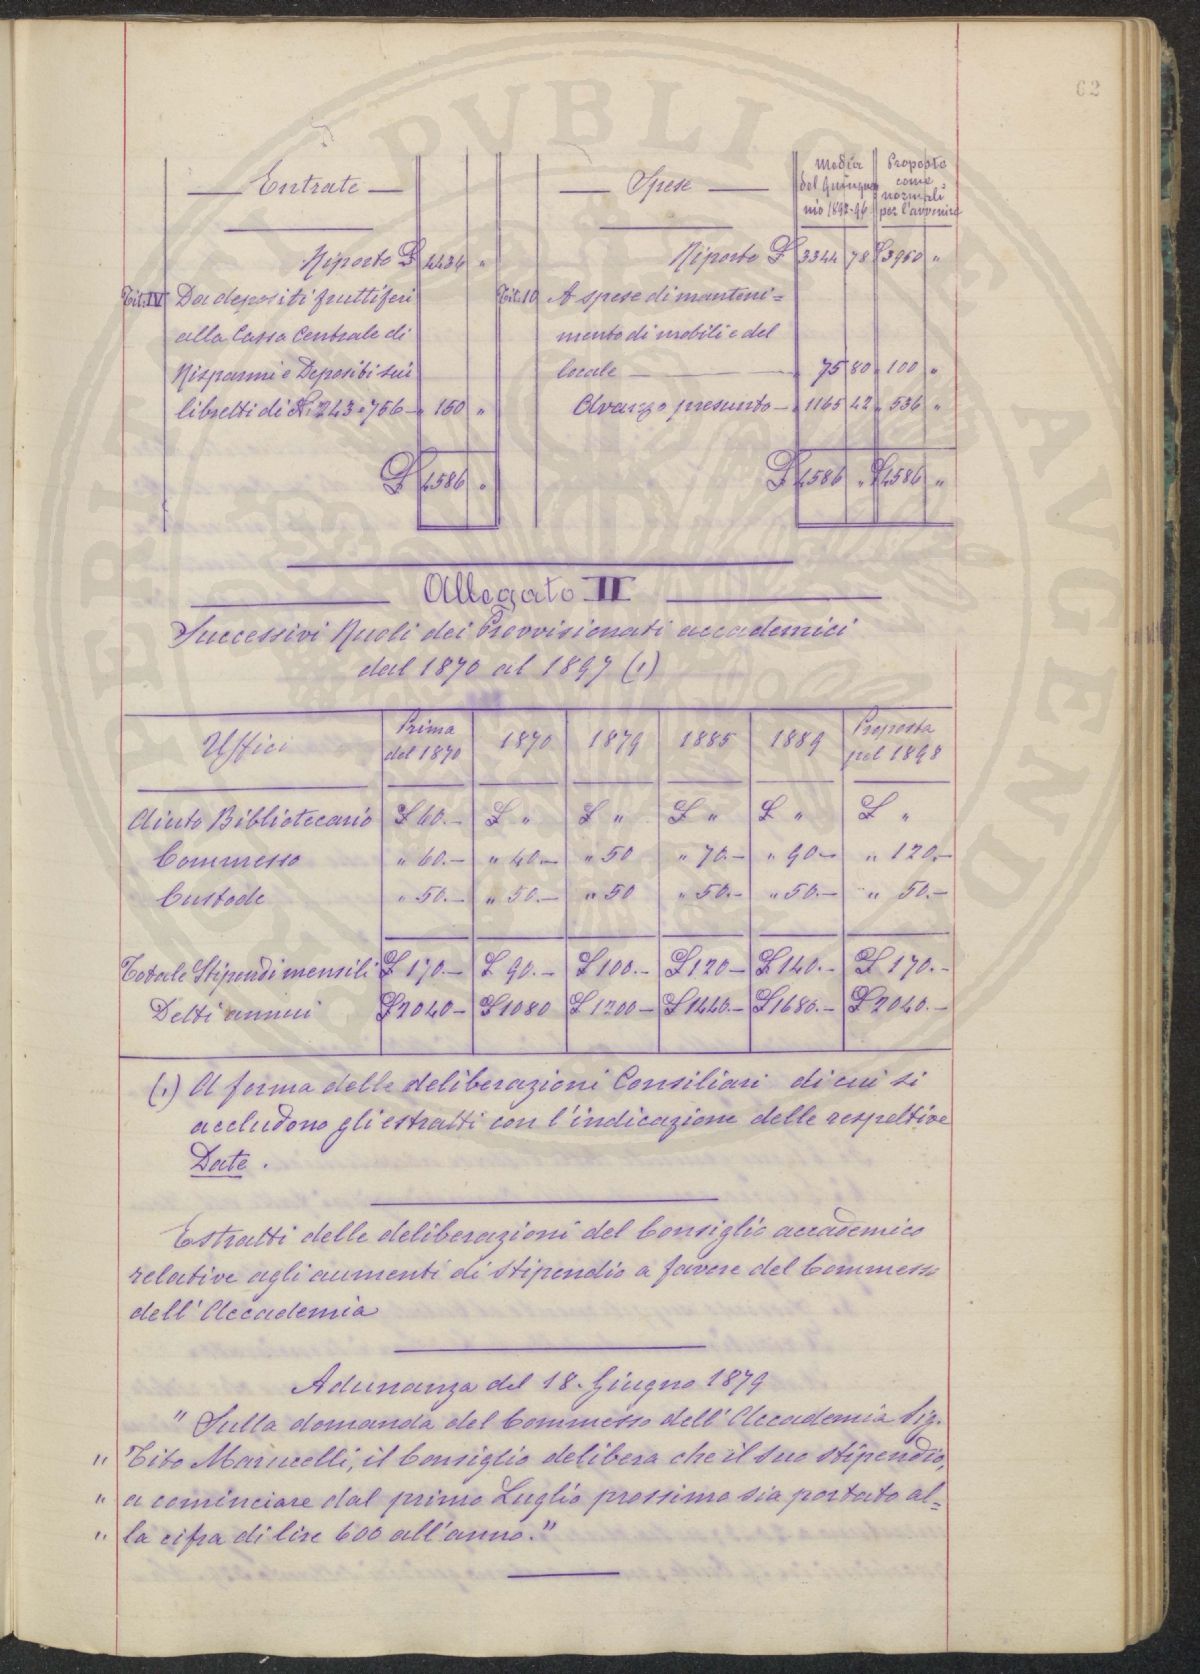 62
Entrate
Riporto £ 4436 "
Tit. IV Da depositi fruttiferi
alla Cassa Centrale di
Risparmi e Depositi sui
libretti di N. 243 e 756 — " 150 "
£ 4586 "
Spese
Media del Quinquennio 1892-96
Proposte come normali per l'avvenire
Riporto £ 3344 78 £ 3950 "
Tit. 10 A spese di manteni=
mento di mobili e del
locale — " 75 80 " 100 "
Avanzo presunto — " 1165 42 " 536 "
£ 4586 " £ 4586 "
Allegato II
Successivi Ruoli dei Provvisionati accademici
dal 1870 al 1897 (1)
Uffici Prima del 1870 1870 1879 1885 1889 Proposta pel 1898
Aiuto Bibliotecario £ 60.— £ " £ " £ " £ " £ "
Commesso " 60.— " 40.— " 50 " 70.— " 90.— " 120.—
Custode " 50.— " 50.— " 50 " 50.— " 50.— " 50.—
Totale Stipendi mensili £ 170.— £ 90.— £ 100.— £ 120— £ 140.— £ 170.—
Detti annui £ 2040— £ 1080 £ 1200— £ 1440.— £ 1680.— £ 2040.—
(1) A forma delle deliberazioni Consiliari di cui si
accludono gli estratti con l'indicazione delle respettive
Date.
Estratti delle deliberazioni del Consiglio accademico
relative agli aumenti di stipendio a favore del Commesso
dell'Accademia
Adunanza del 18. Giugno 1879
" Sulla domanda del Commesso dell'Accademia Sig.
" Tito Marucelli, il Consiglio delibera che il suo stipendio,
" a cominciare dal primo Luglio prossimo sia portato al=
" la cifra di lire 600 all'anno."